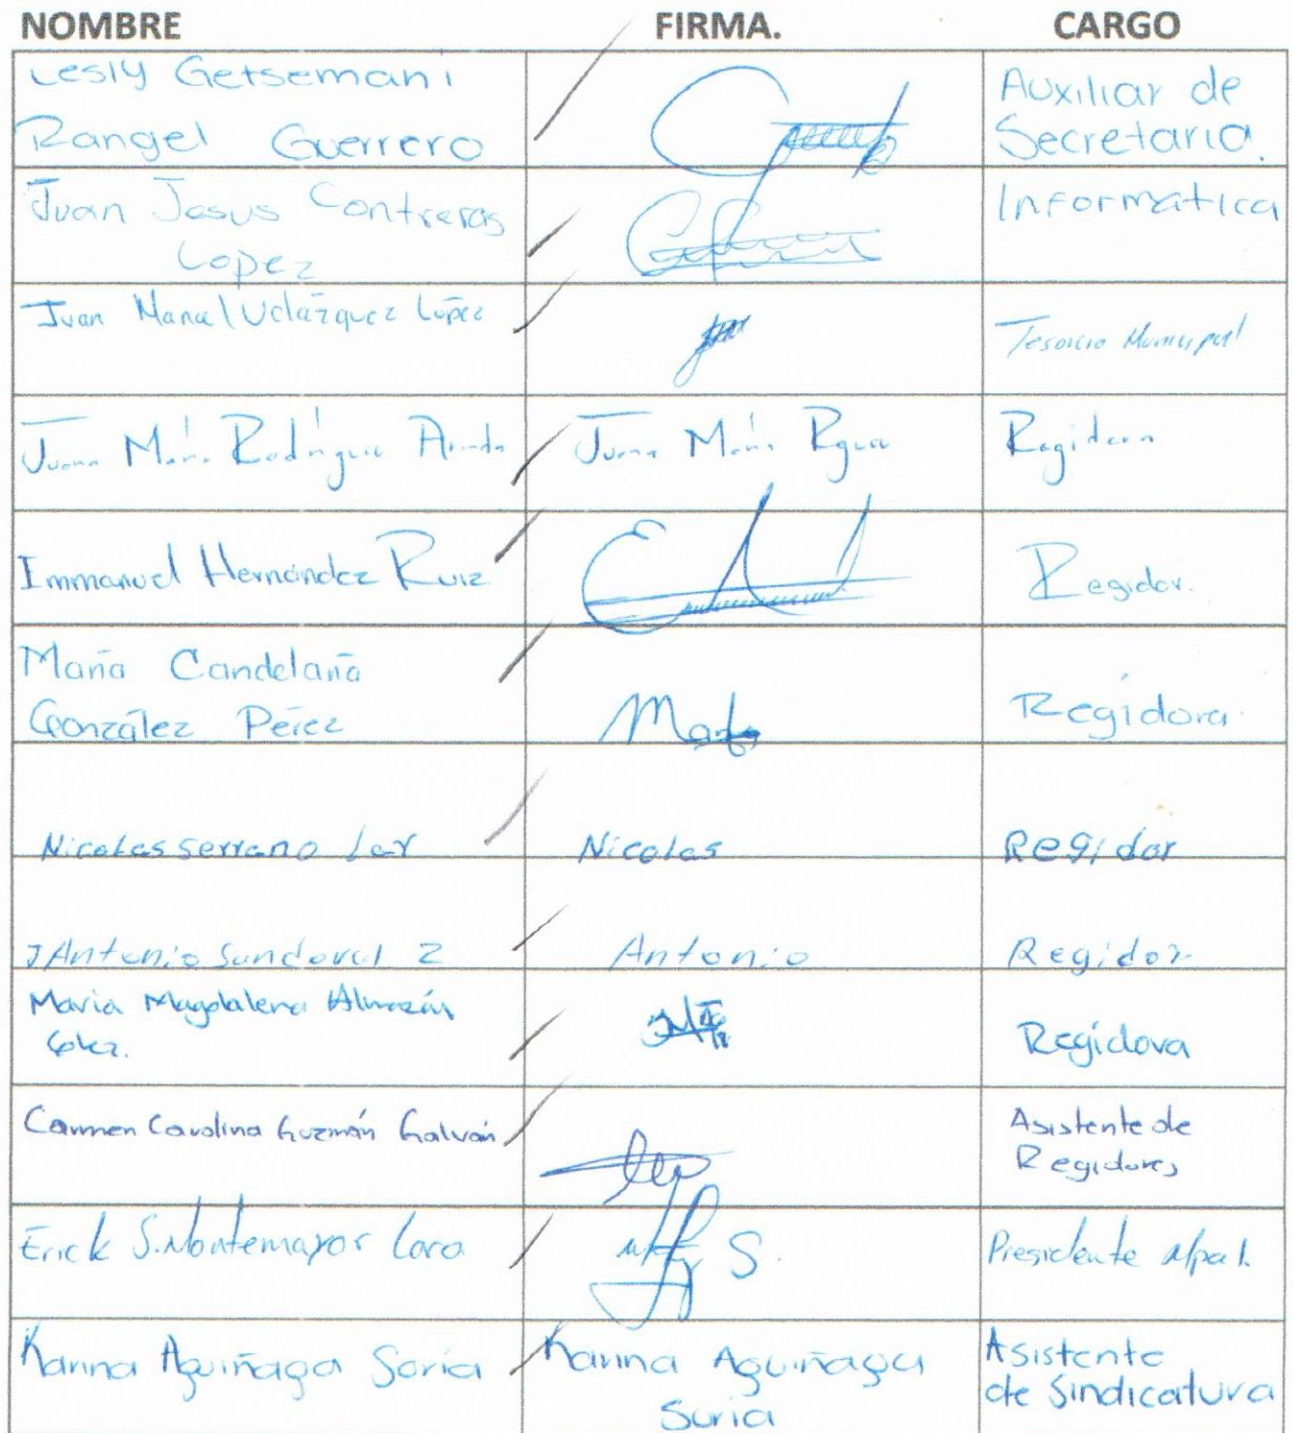 NOMBRE FIRMA. CARGO
Lesly Getsemani
Rangel Guerrero
Auxiliar de
Secretaria.
Juan Jesus Contreras
Lopez
Informatica
Juan Manuel Velázquez López
Tesorero Municipal
Juana Maria Rodríguez Aranda
Juana María Rguez
Regidora
Immanuel Hernández Ruiz
Regidor.
María Candelaria
González Pérez
Regidora
Nicolas Serrano Lar
Nicolas
Regidor
J Antonio Sandoval Z
Antonio
Regidor
Maria Magdalena Almazán
Regidora
Carmen Carolina Guzmán Galván
Asistente de
Regidores
Erick S. Montemayor Lara
Presidente Mpal.
Karina Aguiñaga Soria
Karina Aguiñaga
Soria
Asistente
de Sindicatura